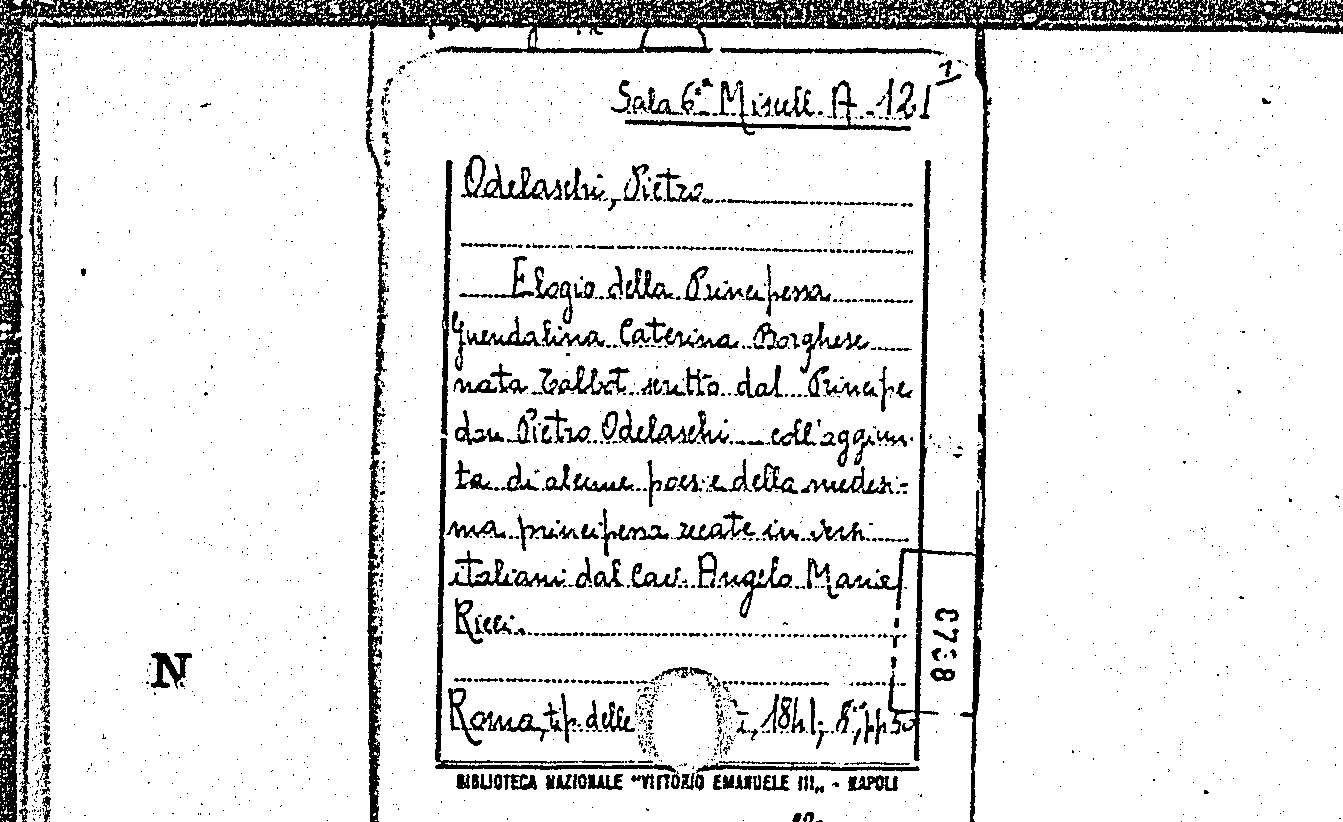 Sala 6ª Miscell. A. 121 1
Odelaschi, Pietro
Elogio della Principessa
Guendalina Caterina Borghese
nata Talbot scritto dal Principe
don Pietro Odelaschi coll'aggiun-
ta di alcune poesie della medesi-
ma principessa recate in versi
italiani dal Cav. Angelo Maria
Ricci.
Roma, tip. delle i, 1841; 8°, pp 50
BIBLIOTECA NAZIONALE "VITTORIO EMANUELE III„ - NAPOLI
N